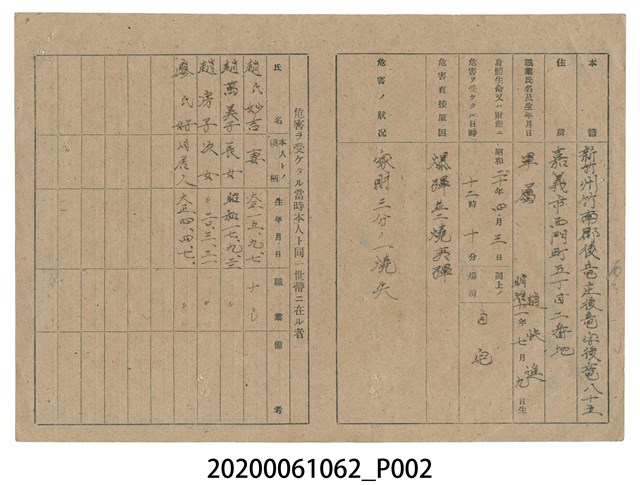 本籍 新竹州竹南郡後竜庄後竜字後竜八十五
住所 嘉義市西門町五丁目二番地
職業氏名及生年月日 軍属 趙快進 明治 年七月九日生
身體生命又ハ財產ニ危害ヲ受ケタル日時 昭和二十年四月三日 十二時十分 場所 自宅
危害直接原因 爆弾並ニ燒夷弾
危害ノ狀況 家財三分ノ一燒失
危害ヲ受ケタル當時本人ト同一世帶ニ在ル者
氏名 本人トノ續柄 生年月日 職業 備考
趙氏妙吉 妻 大正一五、九、七 ナシ
趙萬美子 長女 昭和一七、九、三 〃
趙房子 次女 〃二〇、三、三 〃
廖氏好 同居人 大正四、四、七、 〃
20200061062_P002